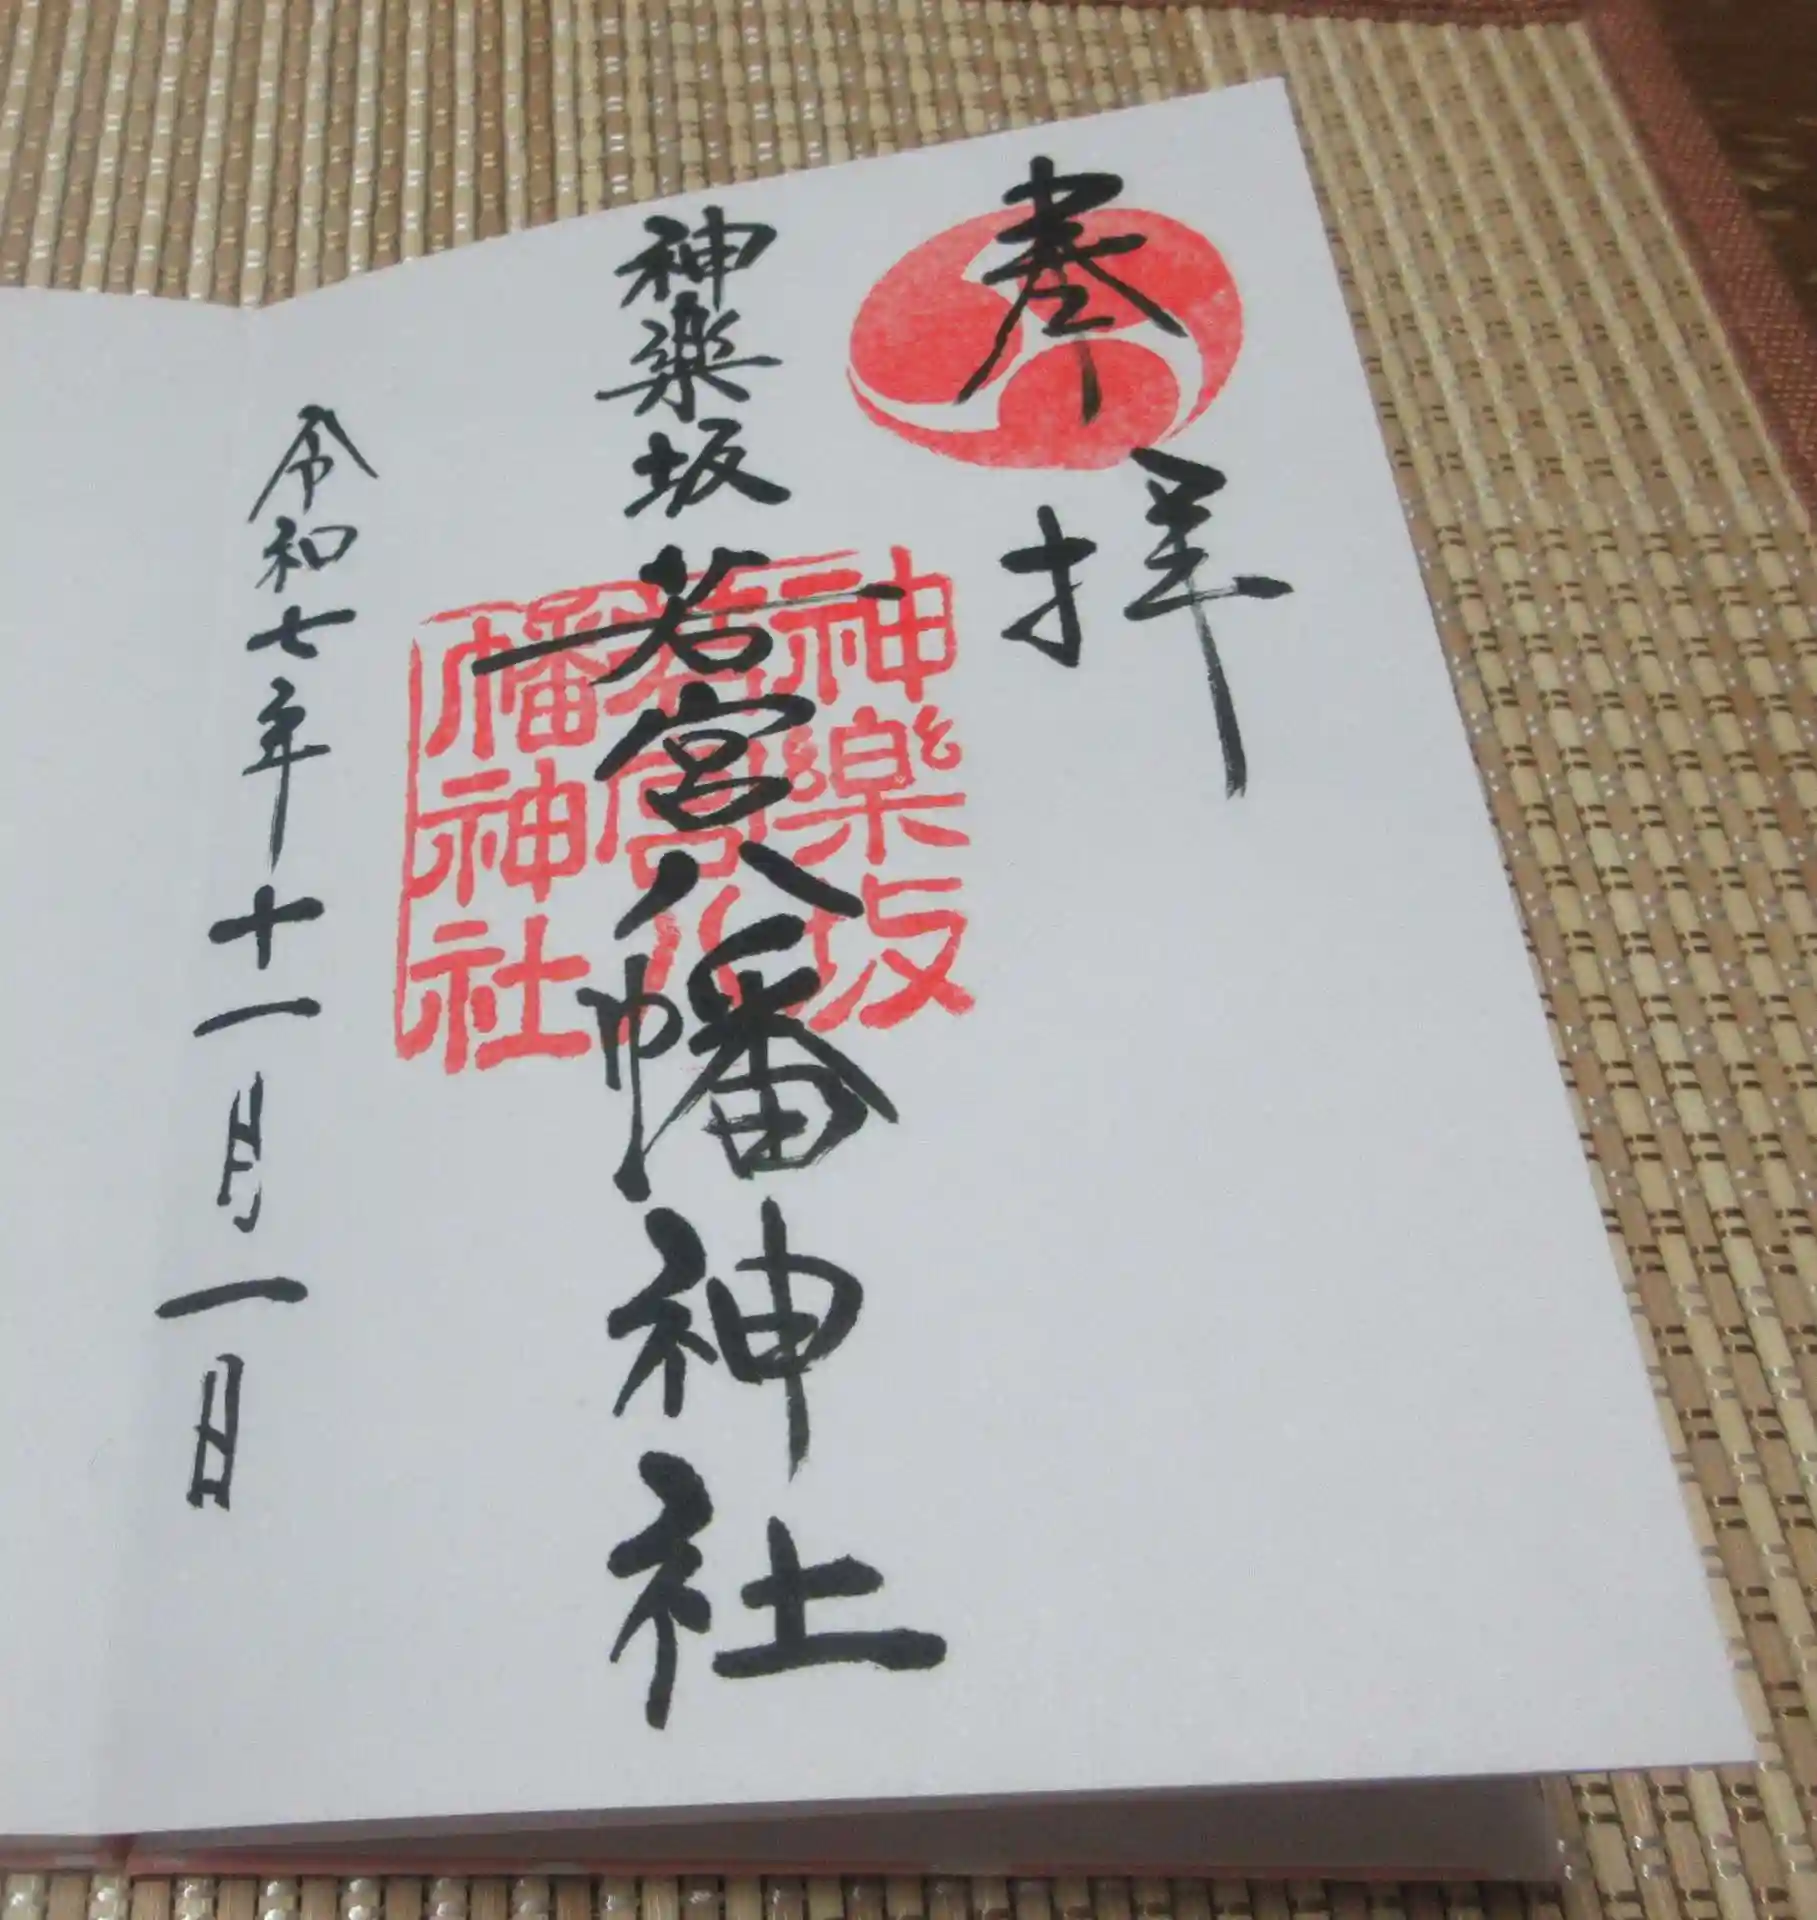 奉拝
神楽坂 若宮八幡神社
神樂坂
若宮八
幡神社
令和七年十一月一日